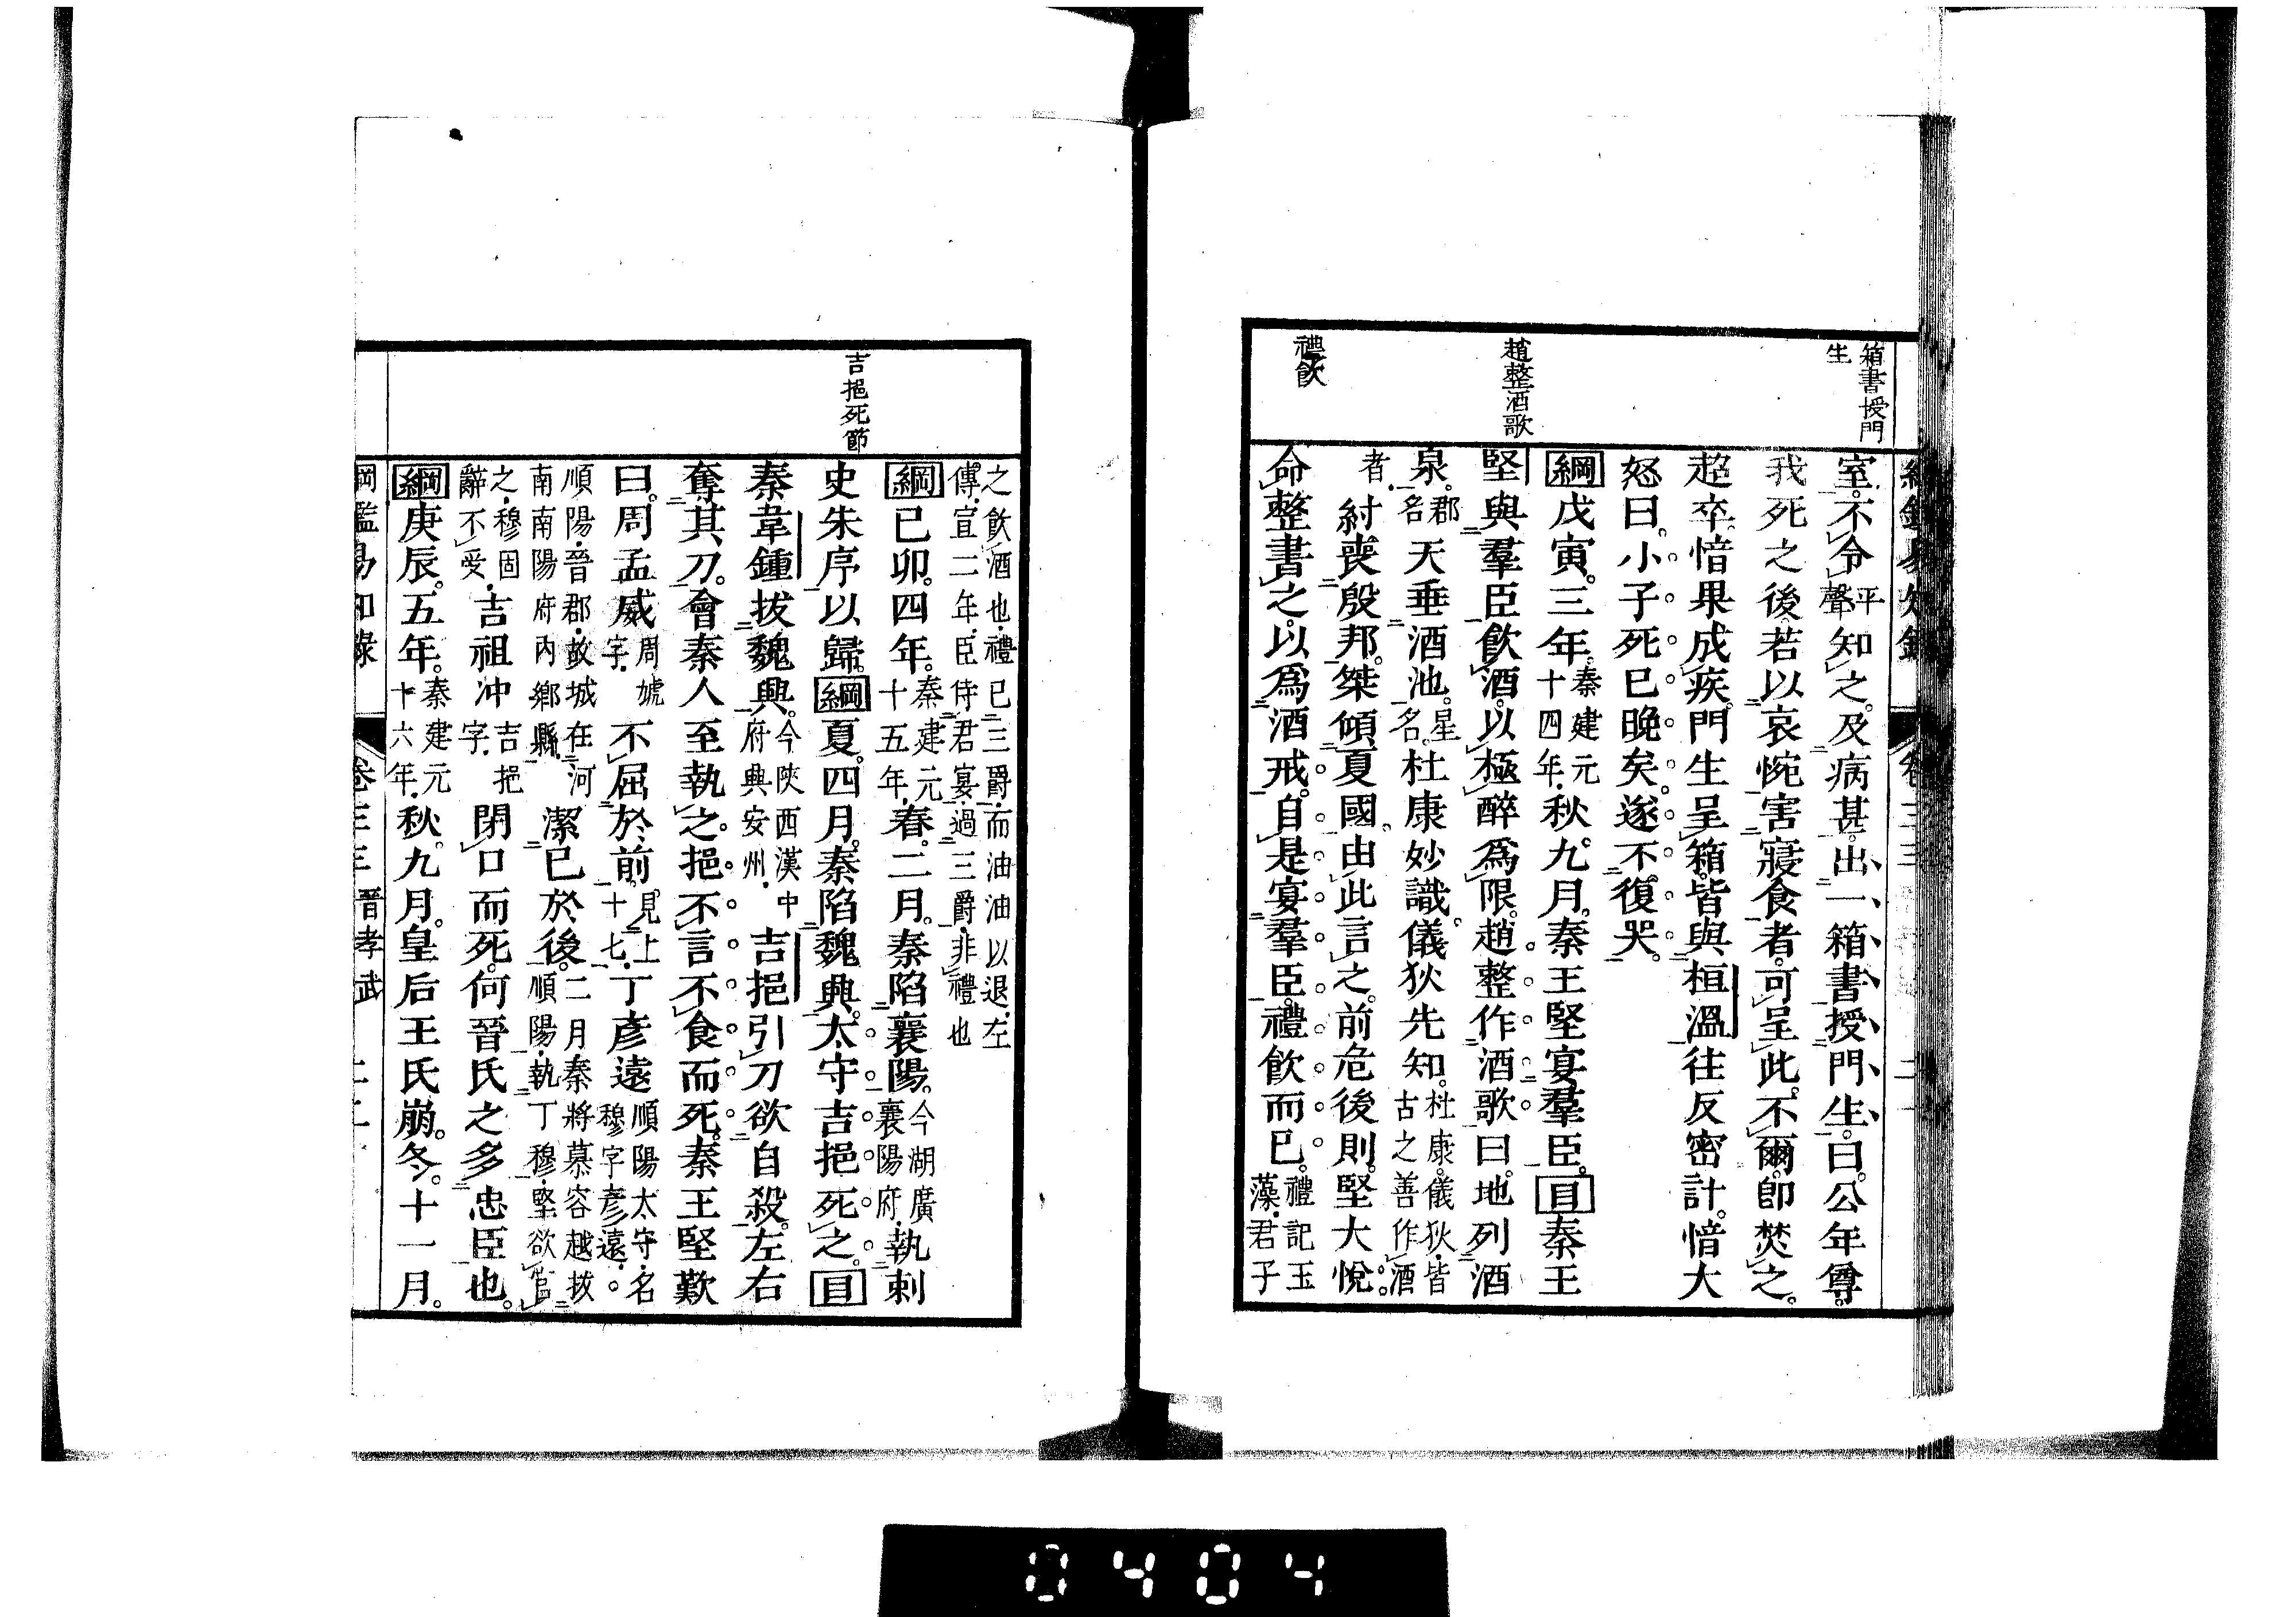 箱書授門
生
趙整酒歌
禮飲
室。不令平聲知之。及病甚。出一箱書授門生。曰。公年尊。
我死之後。若以哀惋害寢食者。可呈此。不爾。即焚之。
超卒。愔果成疾。門生呈箱。皆與桓溫往反密計。愔大
怒曰。小子死已晚矣。遂不復哭。
綱戊寅。三年。秦建元十四年。秋。九月。秦王堅宴羣臣。目秦王
堅與羣臣飲酒。以極醉爲限。趙整作酒歌曰。地列酒
泉。郡名天垂酒池。星名。杜康妙識。儀狄先知。杜康。儀狄。皆古之善作酒
者。紂喪殷邦。桀傾夏國。由此言之。前危後則。堅大悅。
命整書之。以爲酒戒。自是宴羣臣。禮飲而已。禮記玉藻。君子
吉挹死節
之飲酒也。禮已三爵。而油油以退。左傳。宣二年。臣侍君宴。過三爵。非禮也
綱己卯。四年。秦建元十五年。春。二月。秦陷襄陽。今湖廣襄陽府。執刺
史朱序以歸。綱夏。四月。秦陷魏興。太守吉挹死之。目
秦韋鍾拔魏興。今陝西漢中府興安州。吉挹引刀欲自殺。左右
奪其刀。會秦人至執之。挹不言不食而死。秦王堅歎
曰。周孟威周虓字。不屈於前。見上十七。丁彥遠順陽太守。名穆字彥遠。
順陽。晉郡。故城在河南南陽府內鄉縣。潔已於後。二月秦將慕容越拔順陽。執丁穆。堅欲官
之。穆固辭不受。吉祖冲吉挹字。閉口而死。何晉氏之多忠臣也。
綱庚辰。五年。秦建元十六年。秋。九月。皇后王氏崩。冬。十一月。
綱鑑易知錄 卷三三 晉孝武
0404